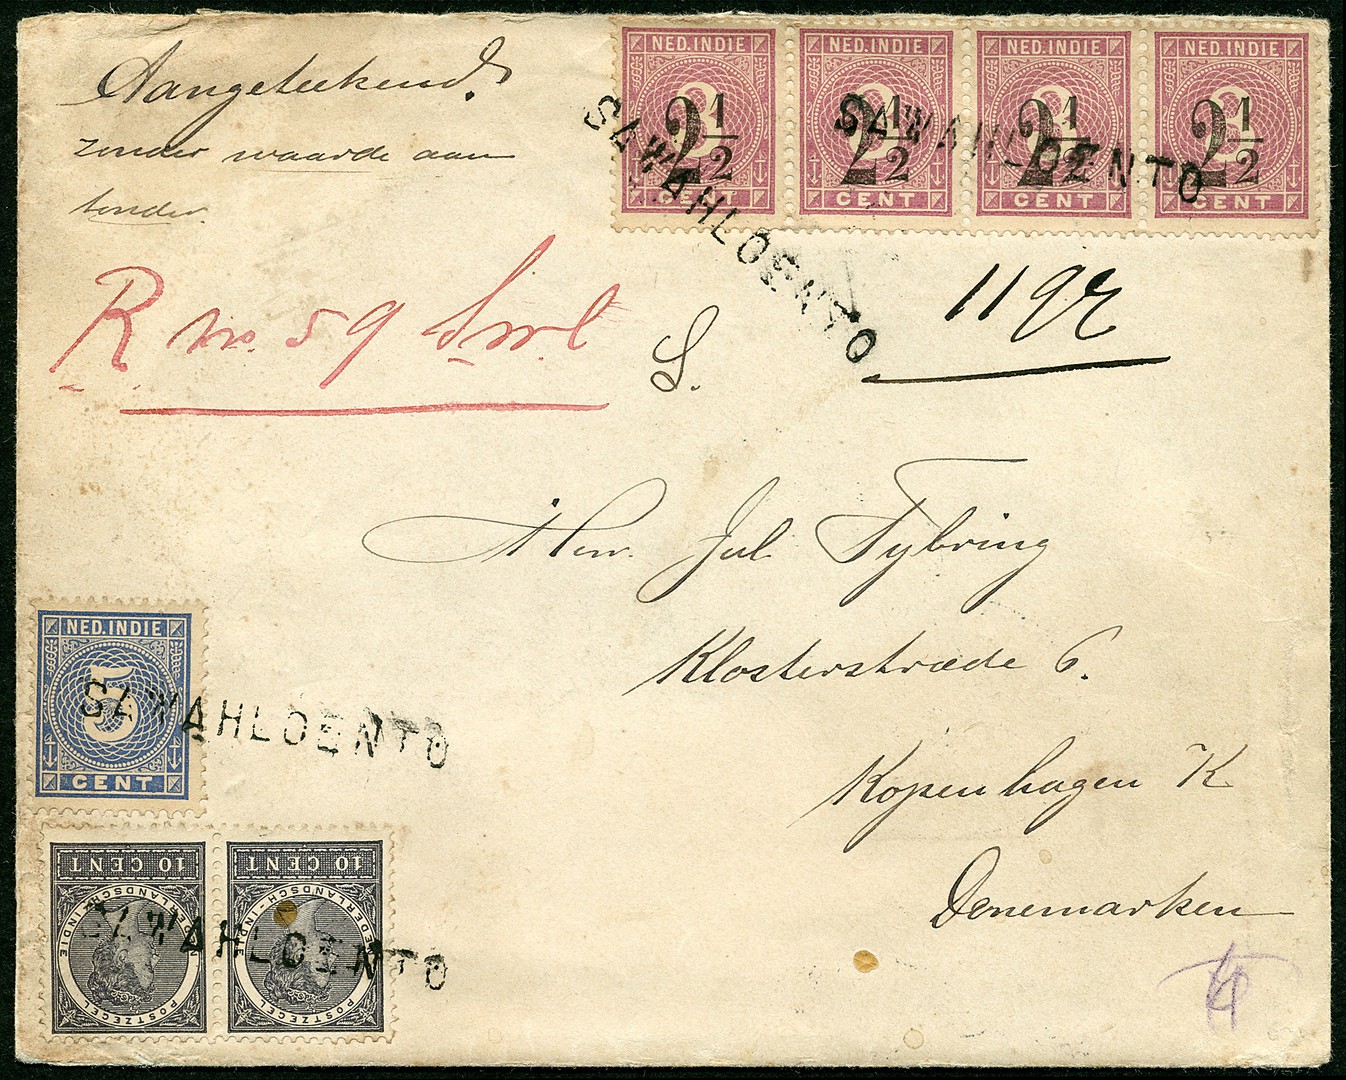 Aangeteekend.
zonder waarde aan
tonder.
NED. INDIE NED. INDIE NED. INDIE NED. INDIE
3 3 3 3
2 1/2 2 1/2 2 1/2 2 1/2
CENT CENT CENT CENT
SAWAHLOENTO
SAWAHLOENTO
R no. 59 Swl
S.
1192
Herr. Jul Fybring
Klosterstræde 6.
Kopenhagen K
Denemarken
NED. INDIE
5
CENT
SAWAHLOENTO
10 CENT 10 CENT
NEDERLANDSCH-INDIE NEDERLANDSCH-INDIE
POSTZEGEL POSTZEGEL
SAWAHLOENTO